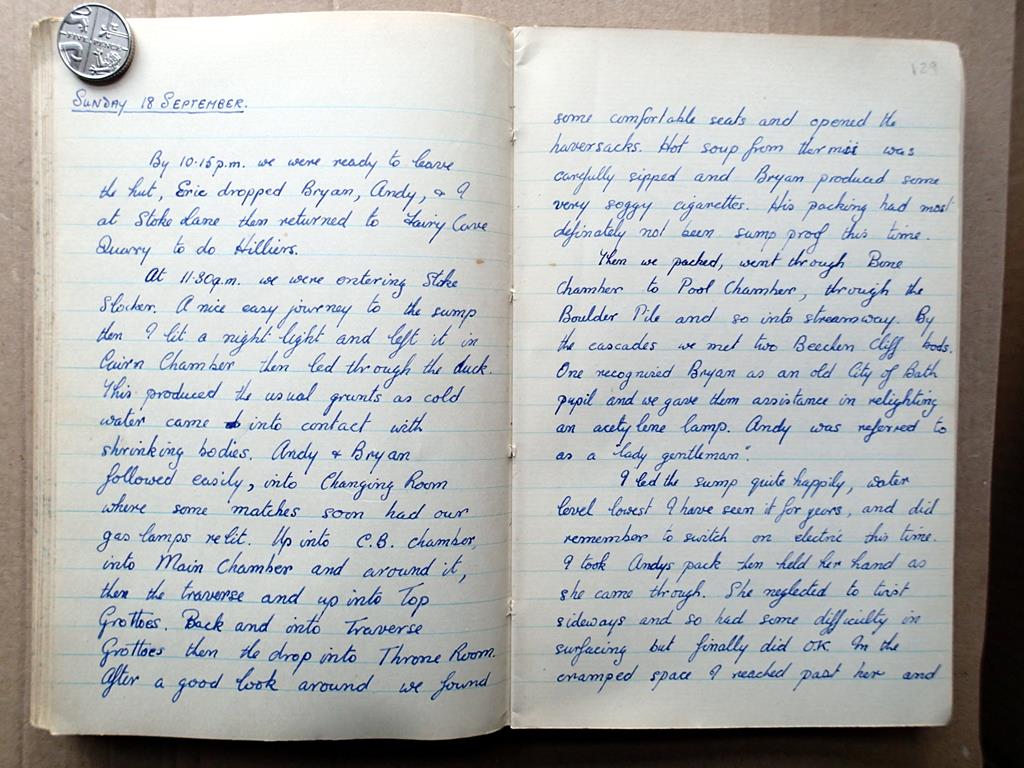 FIVE PENCE
SUNDAY 18 SEPTEMBER.
By 10.15p.m. we were ready to leave
the hut, Eric dropped Bryan, Andy, & I
at Stoke Lane then returned to Fairy Cave
Quarry to do Hilliers.
At 11.30a.m. we were entering Stoke
Slocker. A nice easy journey to the sump
then I lit a night light and left it in
Cairn Chamber then led through the duck.
This produced the usual grunts as cold
water came into contact with
shrinking bodies. Andy & Bryan
followed easily, into Changing Room
where some matches soon had our
gas lamps relit. Up into C.B. chamber,
into Main Chamber and around it,
then the traverse and up into Top
Grottoes. Back and into Traverse
Grottoes then the drop into Throne Room.
After a good look around we found
129
some comfortable seats and opened the
haversacks. Hot soup from thermii was
carefully sipped and Bryan produced some
very soggy cigarettes. His packing had most
definately not been sump proof this time.
Then we packed, went through Bone
Chamber to Pool Chamber, through the
Boulder Pile and so into streamway. By
the cascades we met two Beechen Cliff bods.
One recognised Bryan as an old City of Bath
pupil and we gave them assistance in relighting
an acetylene lamp. Andy was referred to
as a "lady gentleman".
I led the sump quite happily, water
level lowest I have seen it for years, and did
remember to switch on electric this time.
I took Andys pack then held her hand as
she came through. She neglected to twist
sideways and so had some difficulty in
surfacing but finally did OK In the
cramped space I reached past her and